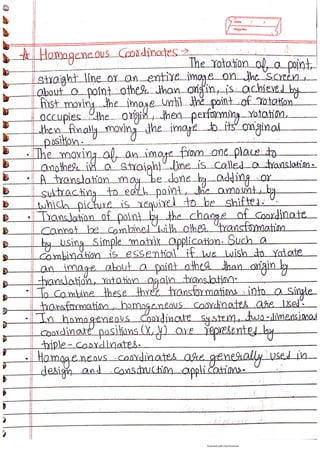 Homogeneous Coordinates →
The rotation of a point,
straight line or an entire image on the screen,
about a point other than origin, is achieved by
first moving the image until the point of rotation
occupies the origin, then performing rotation,
then finally moving the image to its original
position.
• The moving of an image from one place to
another in a straight line is called a translation.
• A translation may be done by adding or
subtracting to each point, the amount, by
which picture is required to be shifted.
• Translation of point by the change of coordinate
cannot be combined with other transformation
by using simple matrix application. Such a
combination is essential if we wish to rotate
an image about a point other than origin by
translation, rotation again translation.
• To combine these three transformations into a single
transformation, homogeneous coordinates are used.
• In homogeneous coordinate system, two-dimensional
coordinate positions (x, y) are represented by
triple-coordinates.
• Homogeneous coordinates are generally used in
design and construction applications.